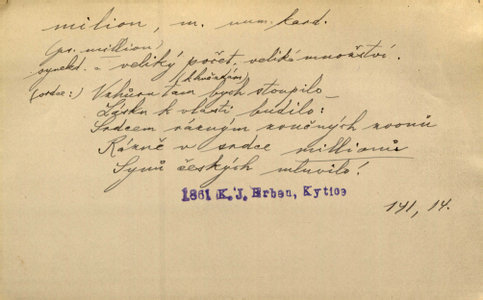 milion, m. num. kard.
(pr. million)
synekd. = veliký počet, veliké množství.
(k hvězdám)
(srdce:) Vzhůru tam bych stoupilo –
Lásku k vlasti budilo:
Srdcem rázným zvučných zvonů
Rázně v srdce millionů
Synů českých mluvilo!
1861 K. J. Erben, Kytice
141, 14.